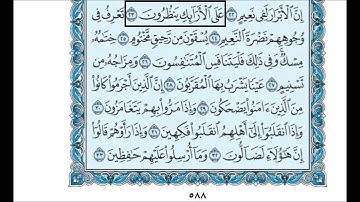 إِنَّ ٱلْأَبْرَارَ لَفِى نَعِيمٍ ٢٢ عَلَى ٱلْأَرَآئِكِ يَنظُرُونَ ٢٣ تَعْرِفُ فِى
وُجُوهِهِمْ نَضْرَةَ ٱلنَّعِيمِ ٢٤ يُسْقَوْنَ مِن رَّحِيقٍ مَّخْتُومٍ ٢٥ خِتَٰمُهُۥ
مِسْكٌ وَفِى ذَٰلِكَ فَلْيَتَنَافَسِ ٱلْمُتَنَٰفِسُونَ ٢٦ وَمِزَاجُهُۥ مِن
تَسْنِيمٍ ٢٧ عَيْنًا يَشْرَبُ بِهَا ٱلْمُقَرَّبُونَ ٢٨ إِنَّ ٱلَّذِينَ أَجْرَمُوا۟ كَانُوا۟
مِنَ ٱلَّذِينَ ءَامَنُوا۟ يَضْحَكُونَ ٢٩ وَإِذَا مَرُّوا۟ بِهِمْ يَتَغَامَزُونَ ٣٠
وَإِذَا ٱنقَلَبُوٓا۟ إِلَىٰٓ أَهْلِهِمُ ٱنقَلَبُوا۟ فَكِهِينَ ٣١ وَإِذَا رَأَوْهُمْ قَالُوٓا۟
إِنَّ هَٰٓؤُلَآءِ لَضَآلُّونَ ٣٢ وَمَآ أُرْسِلُوا۟ عَلَيْهِمْ حَٰفِظِينَ ٣٣
٥٨٨